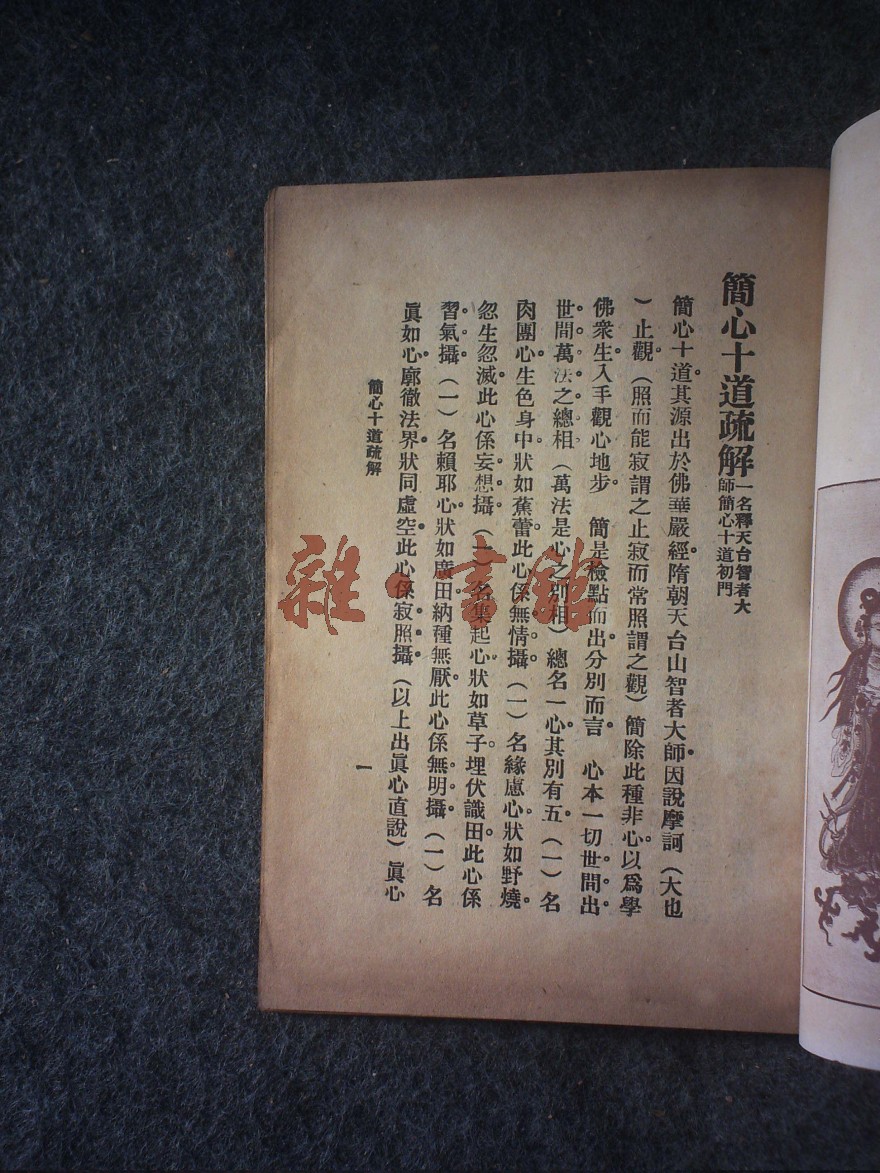 簡心十道疏解一名釋天台智者大
師簡心十道初門
簡心十道其源出於佛華嚴經。隋朝天台山智者大師。因說摩訶（大也
）止觀。（照而能寂謂之止寂而常照謂之觀）簡除此種非心。以爲學
佛衆生入手觀心地步。　簡是檢點而出。分別而言。　心本一切世間出
世間萬法之總相（萬法是心之別相）總名一心。其別有五。（一）名
肉團心。生色身中。狀如蕉蕾。此心係無情攝。（一）名緣慮心。狀如野燒。
忽生忽滅。此心係妄想攝。（一）名集起心。狀如草子。埋伏識田。此心係
習氣攝。（一）名賴耶心。狀如廣田。納種無厭。此心係無明攝。（一）名
眞如心。廓徹法界。狀同虛空。此心係寂照攝。（以上出眞心直說）眞心
簡心十道疏解
一
雜·書館